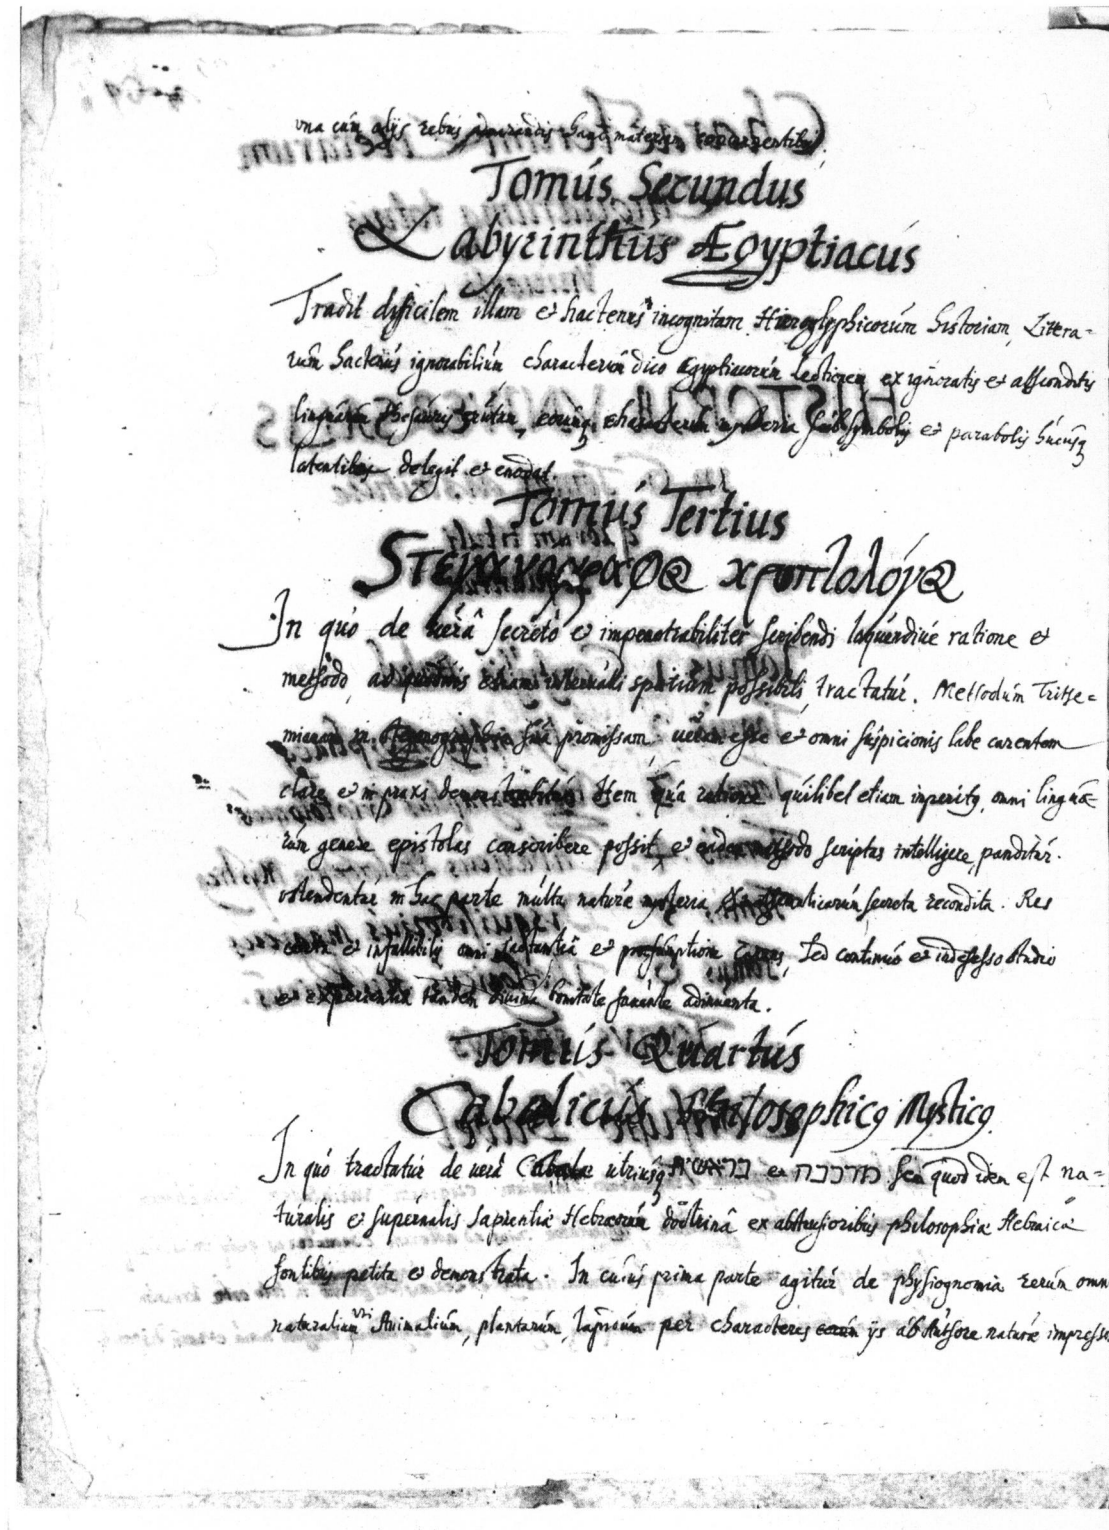 una cum alijs rebus admirandis hanc materiam concernentibus.
Tomús Secundus
Labyrinthús Ægyptiacús
Tradit difficilem illam et hactenus incognitam Hieroglyphicorúm historiam, Litera-
rúm hactenús ignorabiliúm characterúm dico Ægyptiacorúm lectionem ex ignoratis et absconditis
linguarúm thesauris erutam, eorúmq characterúm mysteria sub symbolis et parabolis húcúsq
latentibus detegit et enodat.
Tomús Tertius
In quó de uérâ secretó et impenetrabiliter scribendi loquendiúe ratione et
methodo, ad quodúis etiam interualli spatium possibili, tractatúr. Methodúm Trithe-
mianam in Steganographia suâ promissam ueram esse et omni súspicionis labe carentem
clare et in praxi demonstrabitúr Item quâ ratione quilibet etiam imperitq omni linguâ-
rúm genere epistolas conscribere possit, et eadem methodo scriptas intelligere, panditúr.
ostendentúr in hac parte múlta natúræ mysteria secreta recondita. Res
certa et infallibilis omni iactantiâ et præsumptione carens, sed continuó et indefesso studio
et experientia tandem diuina bonitate fauente adinuenta.
Tomús Quartús
Cabalicús Philosophicq Mysticq
In quó tractatúr de uérâ Cabala utriúsq בראשית et מרכבה seu quod idem est na-
turalis et súpernalis sapientiæ Hebræorúm doctrinâ ex abstrusioribús philosophiæ Hebraicæ
fontibus petita et demonstrata. In cúiús prima parte agitúr de physiognomia rerúm omn
naturalium uti Animaliúm, plantarúm, lapidúm per characteres ijs ab Authore naturæ impresso